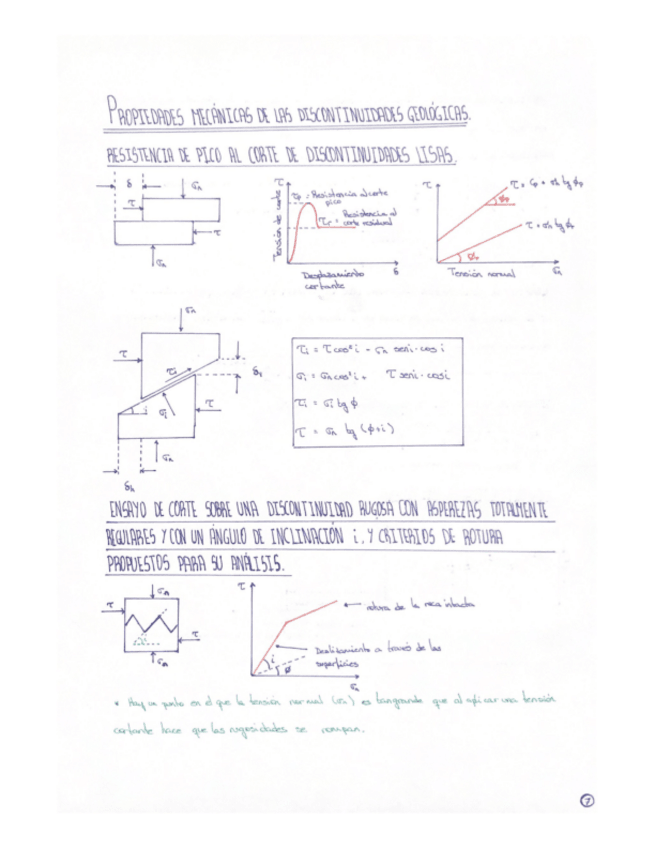 PROPIEDADES MECÁNICAS DE LAS DISCONTINUIDADES GEOLÓGICAS.
RESISTENCIA DE PICO AL CORTE DE DISCONTINUIDADES LISAS.
δ
σn
τ
τ
σn
τ
Tensión de corte
τp = Resistencia al corte
pico
τr = Resistencia al
corte residual
Desplazamiento
cortante
δ
τ
τ = cp + σn tg φp
φp
τ = σn tg φr
φr
Tensión normal
σn
σn
τ
τi
δv
i
σi
τ
σn
δh
τi = τ cos² i - σn sen i · cos i
σi = σn cos² i + τ sen i · cos i
τi = σi tg φ
τ = σn tg (φ+i)
ENSAYO DE CORTE SOBRE UNA DISCONTINUIDAD RUGOSA CON ASPEREZAS TOTALMENTE
REGULARES Y CON UN ÁNGULO DE INCLINACIÓN i, Y CRITERIOS DE ROTURA
PROPUESTOS PARA SU ANÁLISIS.
σn
τ
τ
σn
τ
rotura de la roca intacta
Deslizamiento a través de las
superficies
i
φ
σn
* Hay un punto en el que la tensión normal (σn) es tan grande que al aplicar una tensión
cortante hace que las rugosidades se rompan.
7